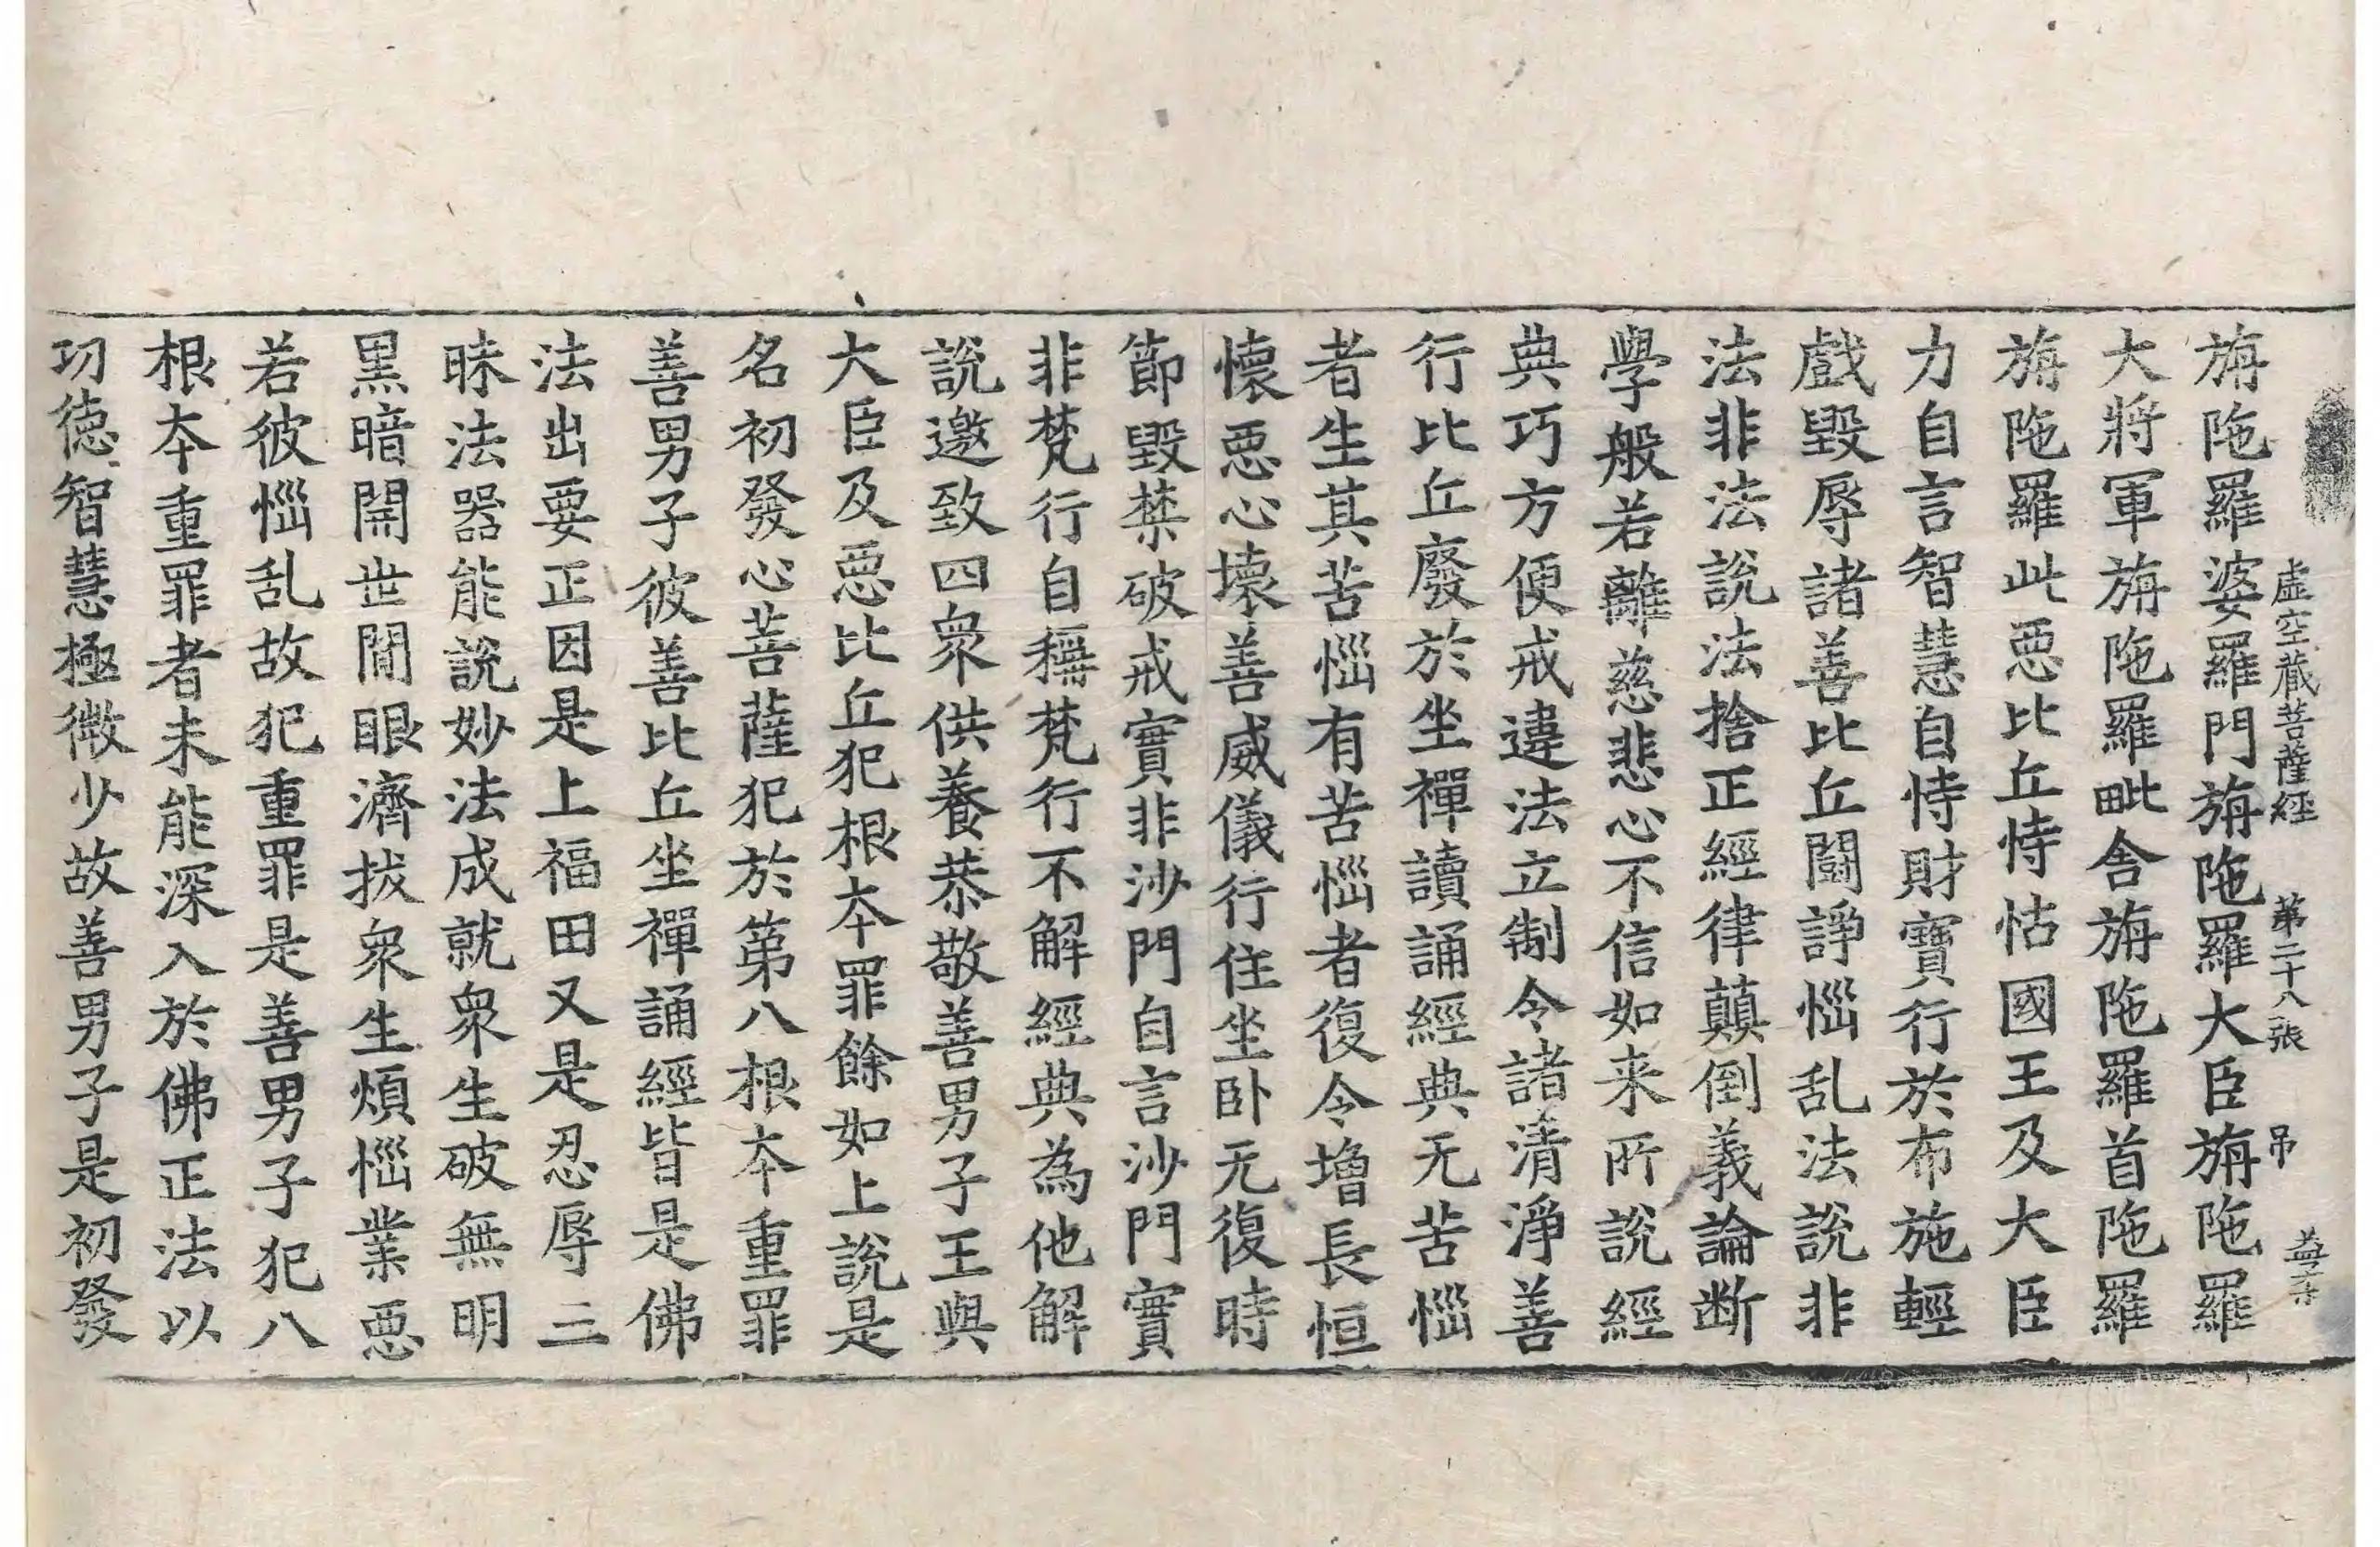 虛空藏菩薩經 第二十八張 吊
旃陁羅婆羅門旃陁羅大臣旃陁羅
大將軍旃陁羅毗舎旃陁羅首陁羅
旃陁羅此惡比丘恃怙國王及大臣
力自言智慧自恃財寶行於布施輕
戲毀辱諸善比丘鬪諍惱乱法說非
法非法說法捨正經律顛倒義論断
學般若離慈悲心不信如来所說經
典巧方便戒違法立制令諸清淨善
行比丘廢於坐禪讀誦經典无苦惱
者生其苦惱有苦惱者復令增長恒
懷惡心壞善威儀行住坐卧无復時
節毀禁破戒實非沙門自言沙門實
非梵行自稱梵行不解經典為他解
說邀致四衆供養恭敬善男子王與
大臣及惡比丘犯根本罪餘如上說是
名初發心菩薩犯於第八根本重罪
善男子彼善比丘坐禪誦經皆是佛
法出要正因是上福田又是忍辱三
昧法器能說妙法成就衆生破無明
黒暗開世閒眼濟拔衆生煩惱業惡
若彼惱乱故犯重罪是善男子犯八
根本重罪者未能深入於佛正法以
功徳智慧極微少故善男子是初發